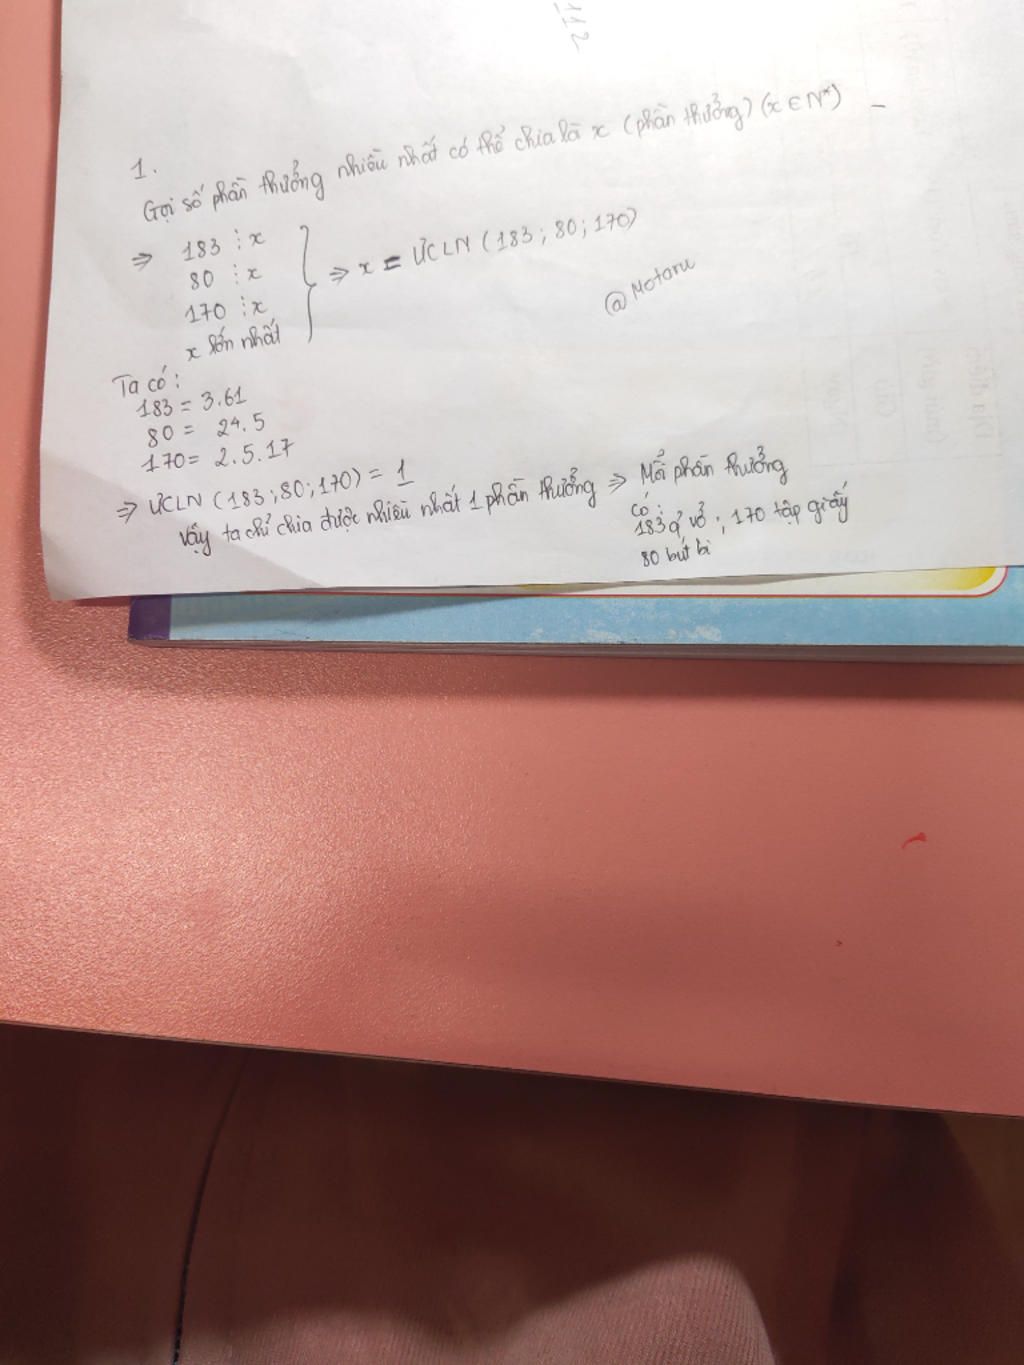 112
1.
Gọi số phần thưởng nhiều nhất có thể chia là x (phần thưởng) (x ∈ N*)
⇒ 183 ⋮ x
80 ⋮ x
170 ⋮ x
x lớn nhất
⇒ x = ƯCLN (183; 80; 170)
@Motoru
Ta có:
183 = 3.61
80 = 2⁴.5
170 = 2.5.17
⇒ ƯCLN (183; 80; 170) = 1
Vậy ta chỉ chia được nhiều nhất 1 phần thưởng ⇒ Mỗi phần thưởng
có:
183 q̉ vở; 170 tập giấy
80 bút bi